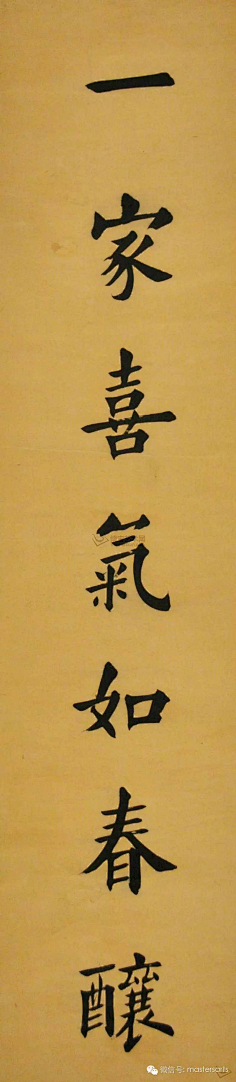 一家喜氣如春釀
微信号: mastersarts